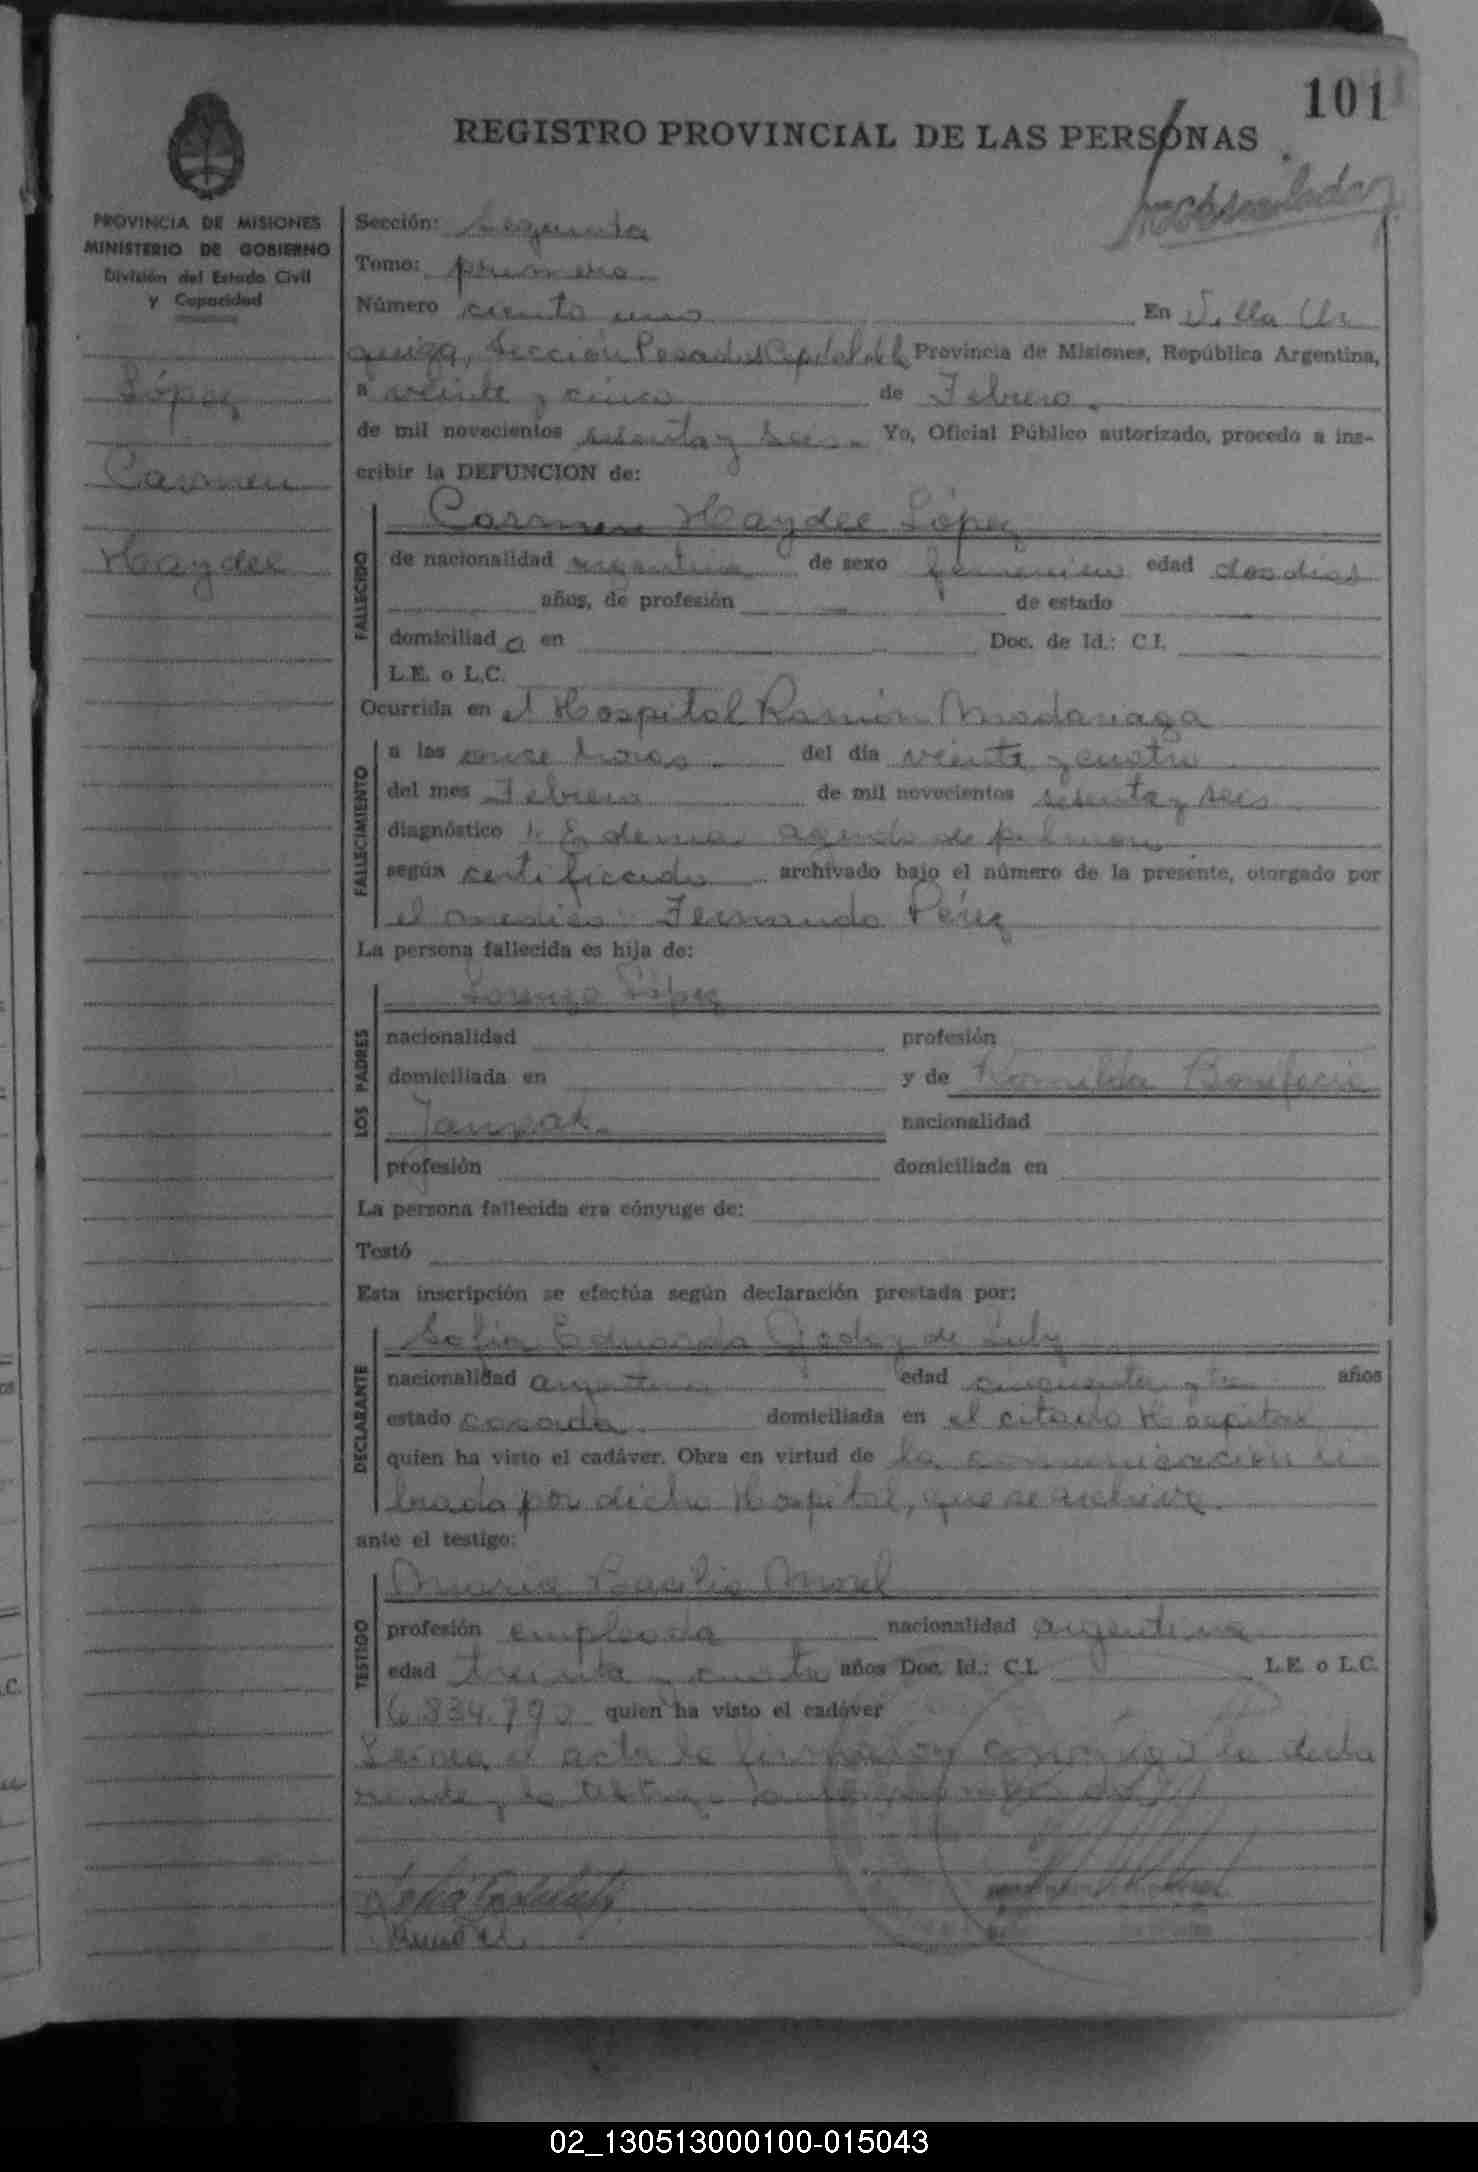 101
REGISTRO PROVINCIAL DE LAS PERSONAS
PROVINCIA DE MISIONES
MINISTERIO DE GOBIERNO
División del Estado Civil
y Capacidad
López
Carmen
Haydee
Sección: Segunda
Tomo: primero
Número ciento uno En Villa Ur
quiza, Sección Posadas Capital de la Provincia de Misiones, República Argentina,
a veinte y cinco de Febrero
de mil novecientos sesenta y seis Yo, Oficial Público autorizado, procedo a ins-
cribir la DEFUNCION de:
FALLECIDO
Carmen Haydee López
de nacionalidad argentina de sexo femenino edad dos dias
años, de profesión de estado
domiciliad a en Doc. de Id.: C.I.
L.E. o L.C.
Ocurrida en el Hospital Ramón Madariaga
FALLECIMIENTO
a las once horas del día veinte y cuatro
del mes Febrero de mil novecientos sesenta y seis
diagnóstico Edema agudo de pulmon
según certificado archivado bajo el número de la presente, otorgado por
el medico: Fernando Pérez
La persona fallecida es hija de:
LOS PADRES
Lorenzo López
nacionalidad profesión
domiciliada en y de Romilda Bonifacia
nacionalidad
profesión domiciliada en
La persona fallecida era cónyuge de:
Testó
Esta inscripción se efectúa según declaración prestada por:
DECLARANTE
Sofia Eduarda Godoy de
nacionalidad argentina edad cincuenta y tres años
estado casada domiciliada en el citado Hospital
quien ha visto el cadáver. Obra en virtud de la comunicación li
brada por dicho Hospital, que se archiva.
ante el testigo:
TESTIGO
Maria Basilia Morel
profesión empleada nacionalidad argentina
edad treinta y cuatro años Doc. Id.: C.I. L.E. o L.C.
quien ha visto el cadáver
Leida el acta la firmaron conmigo la decla
rante y la testigo
02_130513000100-015043